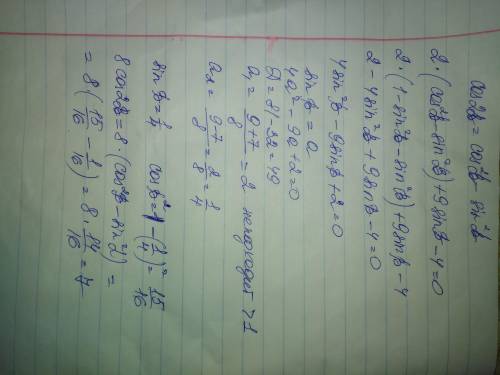 cos2α = cos²α - sin²α
2·(cos²α - sin²α) + 9sinα - 4 = 0
2·(1 - sin²α - sin²α) + 9sinα - 4
2 - 4sin²α + 9sinα - 4 = 0
4sin²α - 9sinα + 2 = 0
sinα = a
4a² - 9a + 2 = 0
D = 81 - 32 = 49
a₁ = (9+7)/8 = 2 не подходит >1
a₂ = (9-7)/8 = 2/8 = 1/4
sinα = 1/4 cos²α = 1 - (1/4)² = 15/16
8cos2α = 8·(cos²α - sin²α) =
= 8(15/16 - 1/16) = 8·14/16 = 7